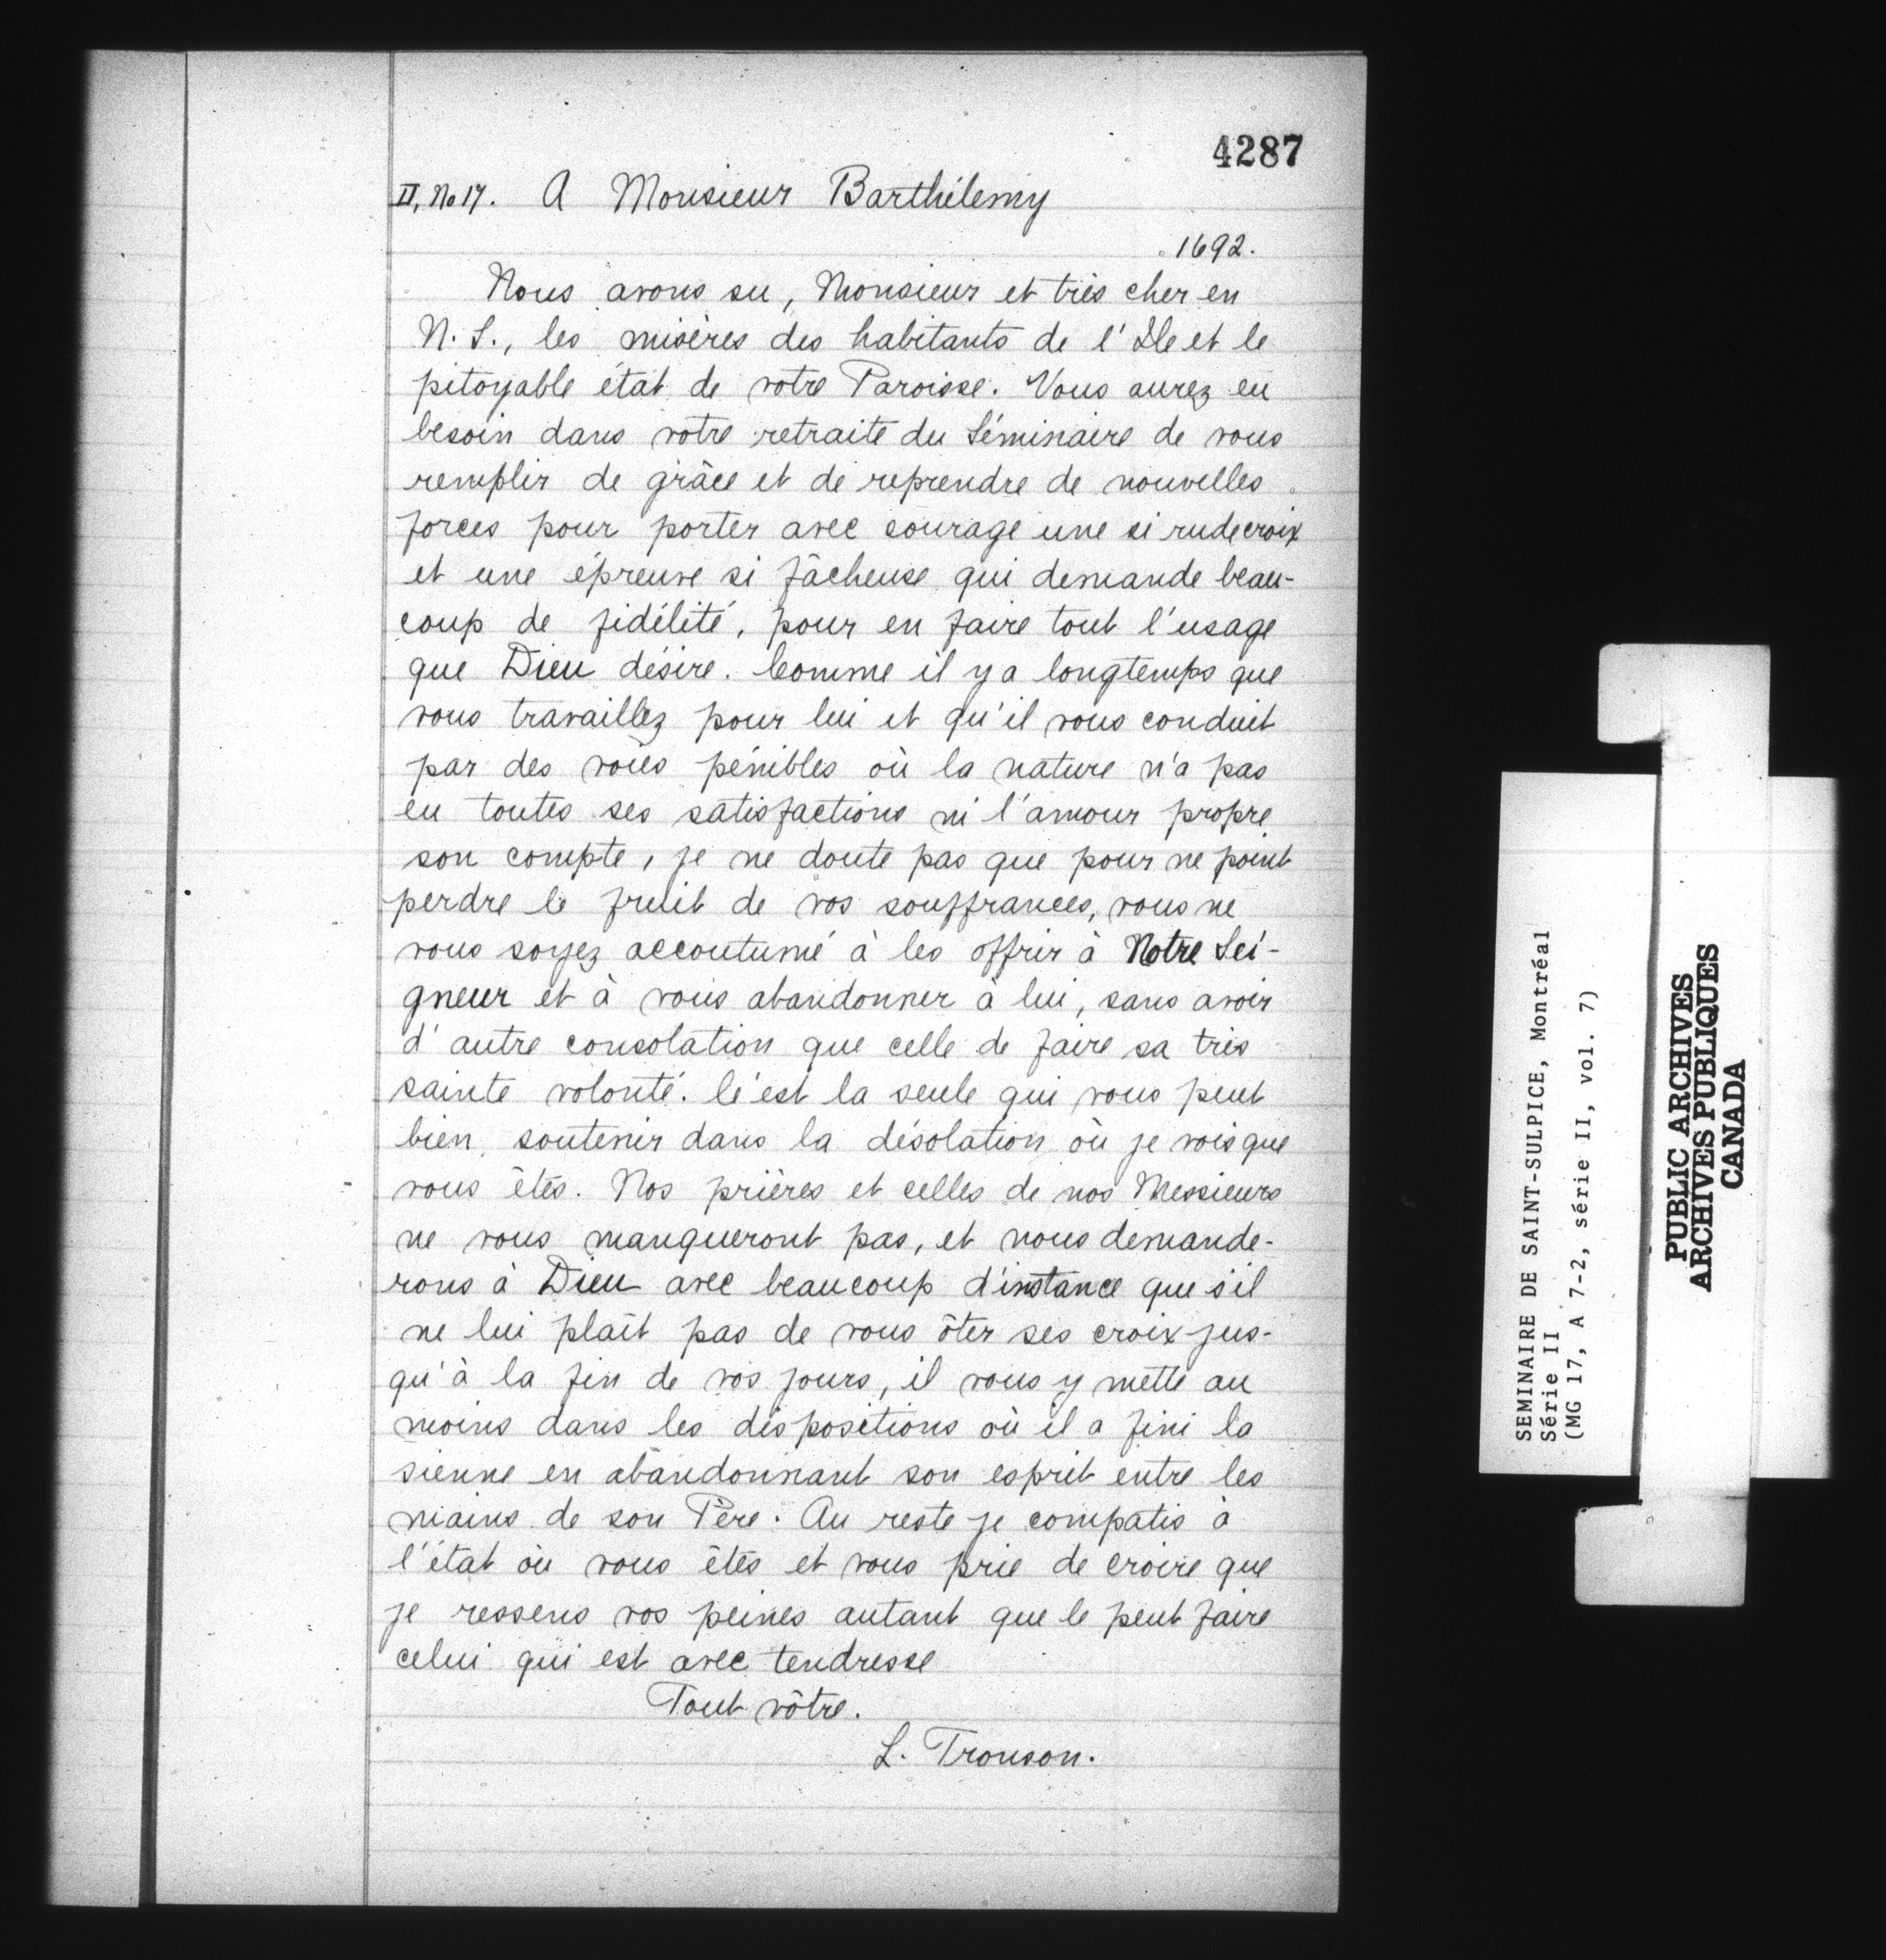 4287
II, No 17. A Monsieur Barthélemy
1692.
Nous avons su, Monsieur et très cher en
N. S., les misères des habitants de l'Ile et le
pitoyable état de votre Paroisse. Vous aurez eu
besoin dans votre retraite du Séminaire de vous
remplir de grâce et de reprendre de nouvelles
forces pour porter avec courage une si rude croix
et une épreuve si fâcheuse qui demande beau-
coup de fidélité, pour en faire tout l'usage
que Dieu désire. Comme il y a longtemps que
vous travaillez pour lui et qu'il vous conduit
par des voies pénibles où la nature n'a pas
eu toutes ses satisfactions ni l'amour propre
son compte, je ne doute pas que pour ne point
perdre le fruit de vos souffrances, vous ne
vous soyez accoutumé à les offrir à Notre Sei-
gneur et à vous abandonner à lui, sans avoir
d'autre consolation que celle de faire sa très
sainte volonté. C'est la seule qui vous peut
bien soutenir dans la désolation où je vois que
vous êtes. Nos prières et celles de nos Messieurs
ne vous manqueront pas, et nous demande-
rons à Dieu avec beaucoup d'instance que s'il
ne lui plaît pas de vous ôter ses croix jus-
qu'à la fin de vos jours, il vous y mette au
moins dans les dispositions où il a fini la
sienne en abandonnant son esprit entre les
mains de son Père. Au reste je compatis à
l'état où vous êtes et vous prie de croire que
je ressens vos peines autant que le peut faire
celui qui est avec tendresse
Tout vôtre.
L. Tronson.
SEMINAIRE DE SAINT-SULPICE, Montréal
Série II
(MG 17, A 7-2, série II, vol. 7)
PUBLIC ARCHIVES
ARCHIVES PUBLIQUES
CANADA